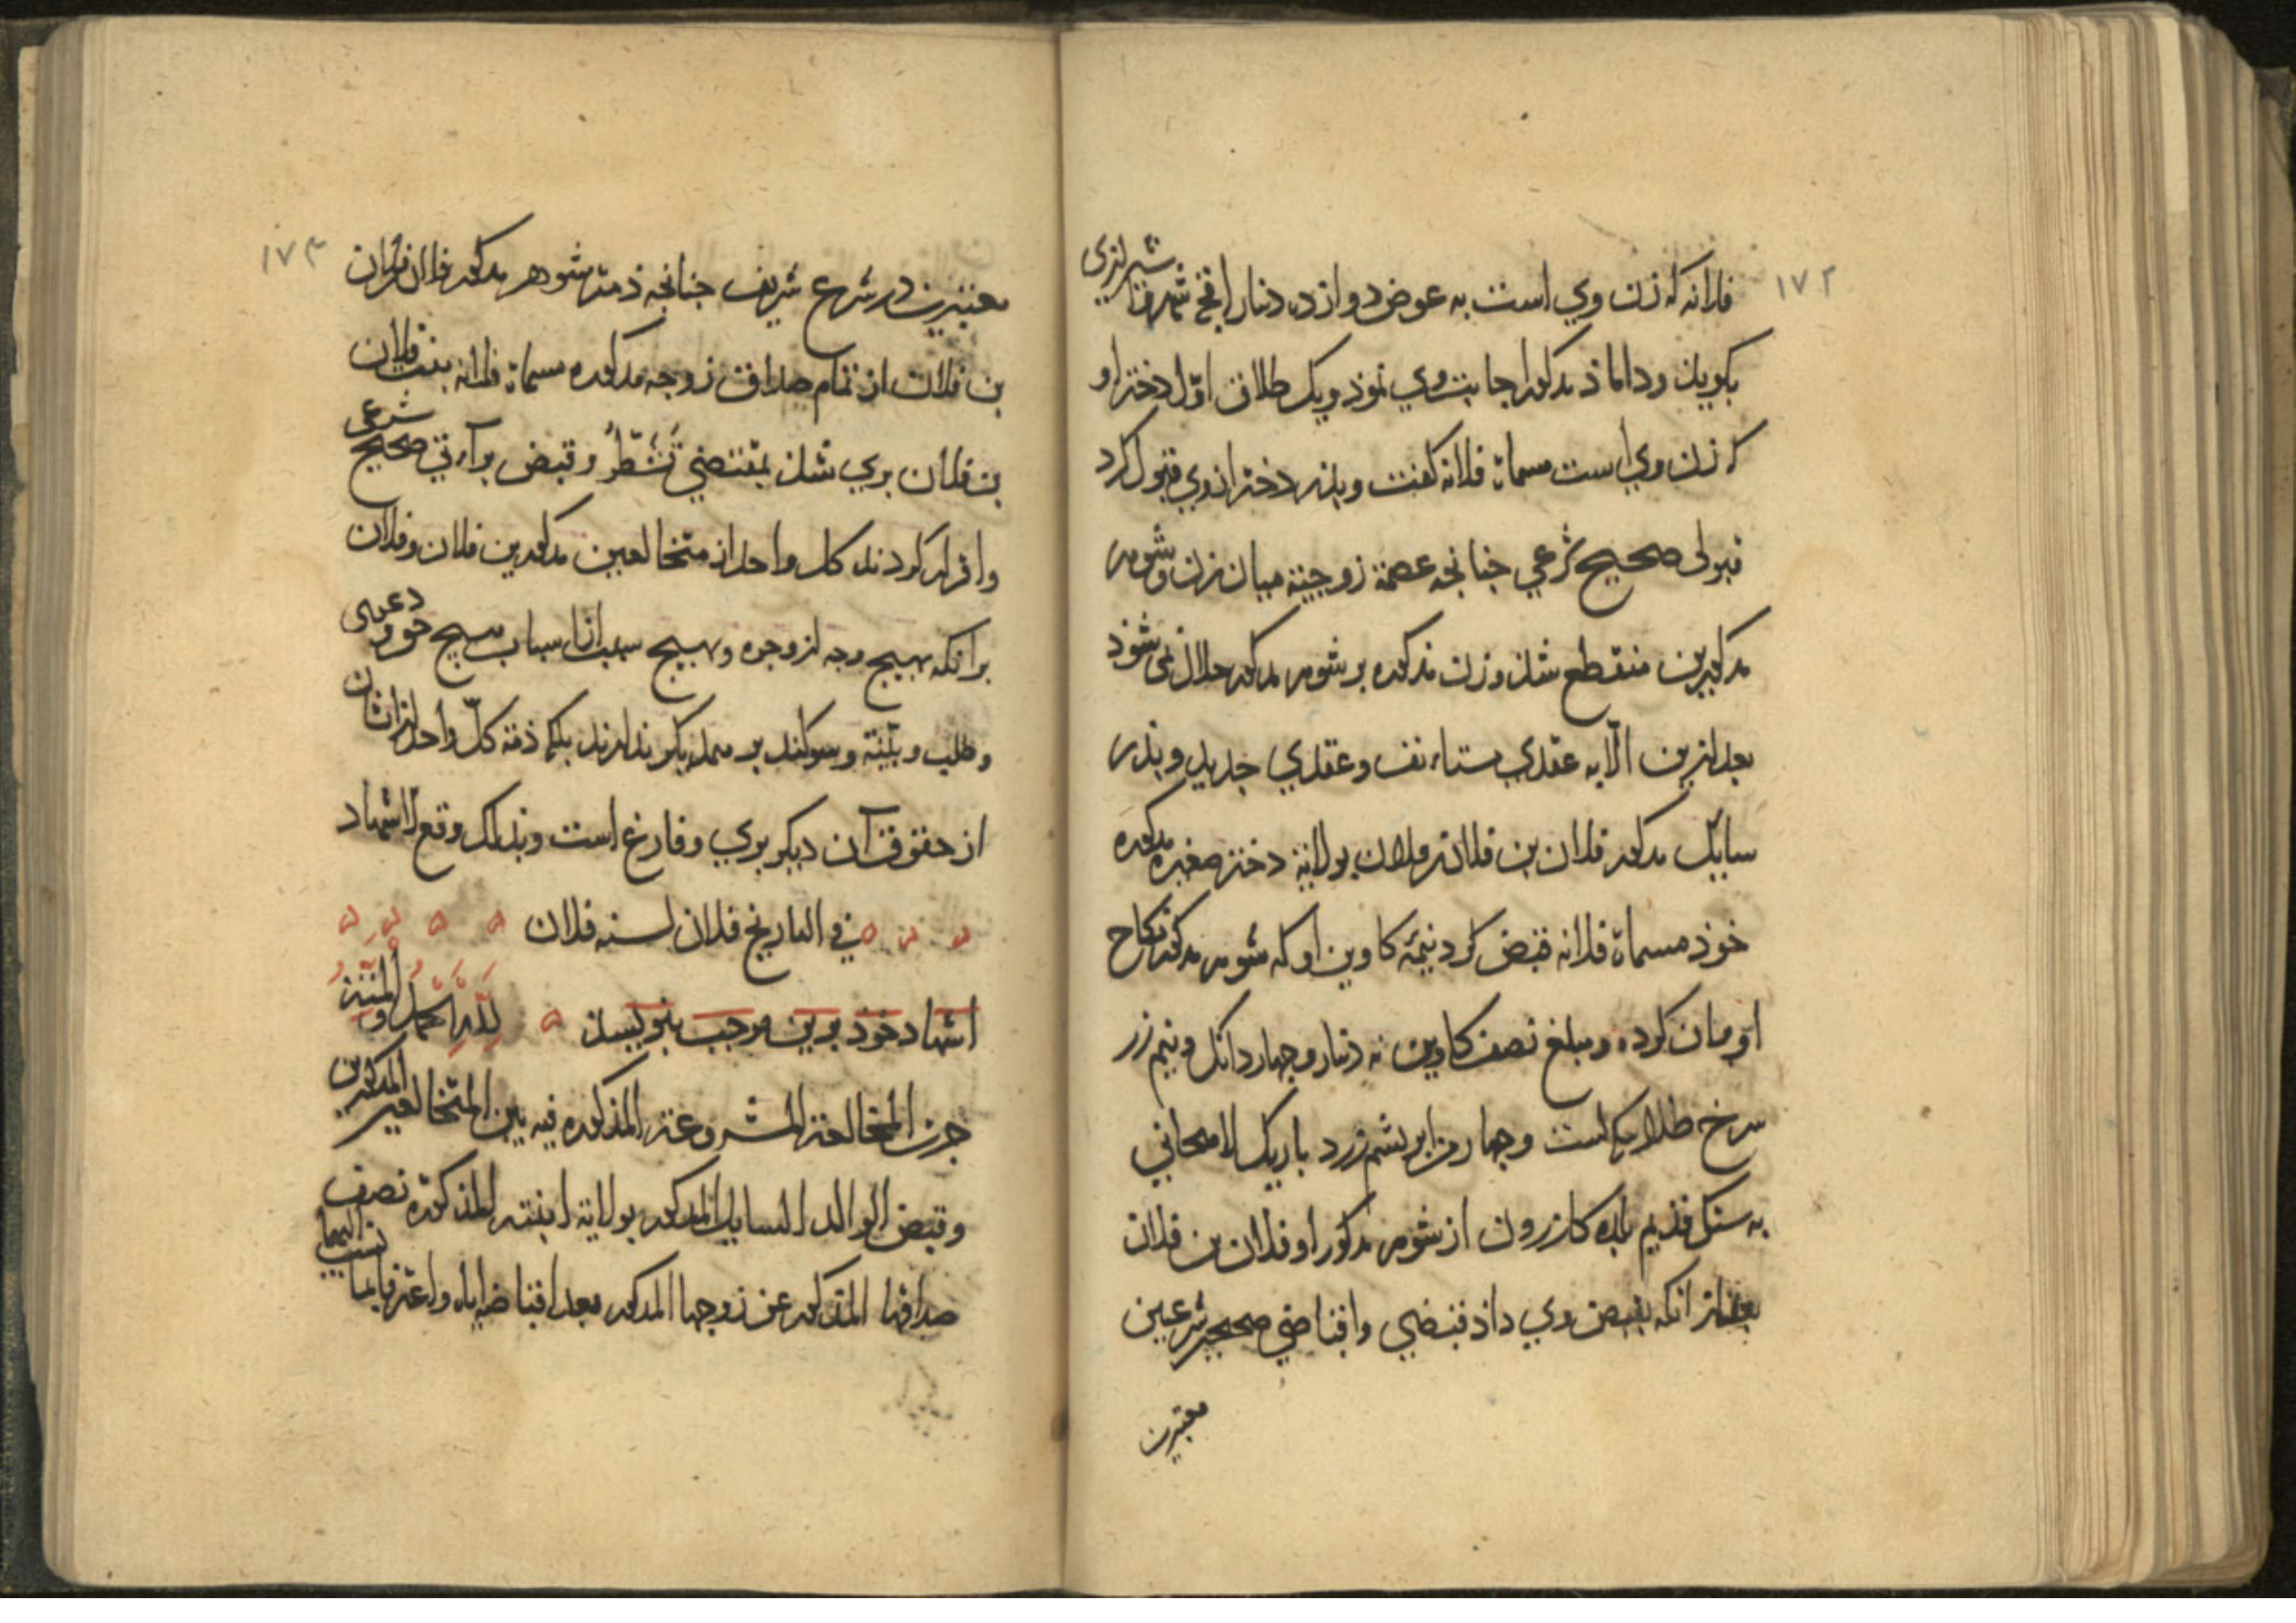 ۱۷۲
فلانه که زن وي است به عوض دوازده دنار اقچه شیرازی
بکوید و داماذ مذکور اجابت وي نموذ و یک طلاق اوّل دختر او
که زن وي است مسماة فلانه کفت و پذر دختر از وي قبول کرد
قبولی صحیح شرعي جنانجه عصمة زوجیة میان زن و شوهر
مذکورین منقطع شذ و زن مذکوره بر شوهر مذکور حلال نمی شوذ
بعد ازین الّا به عقدي مستأنف و عقدي جدید و پذر
سایل مذکور فلان بن فلان بن فلان بولایة دختر صغیره مذکوره
خوذ مسماة فلانه قبض کرد نیمۀ کاوین او که شوهر مذکور نکاح
او مان کرده و مبلغ نصف کاوین نه دنار و جهار دانک و نیم زر
سرخ طلا است و جهار من ابریشم زرد باریک لاهجانی
به سنک قدیم بلده کازرون از شوهر مذکور او فلان بن فلان
بعد از انکه بقبض وي داذ قبضي و اقباضي صحیحین شرعین
معتبرین
۱۷۳
معتبرین در شرع شریف جنانجه ذمت شوهر مذکور فلان بن فلان
بن فلان از تمام صداق زوجه مذکوره مسماة فلانه بنت فلان
بن فلان بري شذ بمقتضي تَشَطُّر و قبض برآءتي صحیح شرعی
و اقرار کردند کل واحد از متخالعین مذکورین فلان و فلان
بر انکه بهیج وجه از وجوه و بهیج سبب از اسباب هیج حق و دعوی
و طلب و بیّنة و سوکند بر همدیکر ندارند بلکه ذمة کلّ واحد از اشان
از حقوق آن دیکر بري و فارغ است و بذلک وقع الاشهاد
في التاریخ فلان لسنه فلان
اشهاد خوذ برین موجب بنویسند لله الحمد والمنة
جرت المخالعة المشروعة المذکوره فیه بین المتخالعین المذکورین
و قبض الوالد السایل المذکور بولایة ابنته المذکورة نصف
صداقها المذکور عن زوجها المذکور بعد اقباضه ایاه و اعترفا بما نسب الیهما